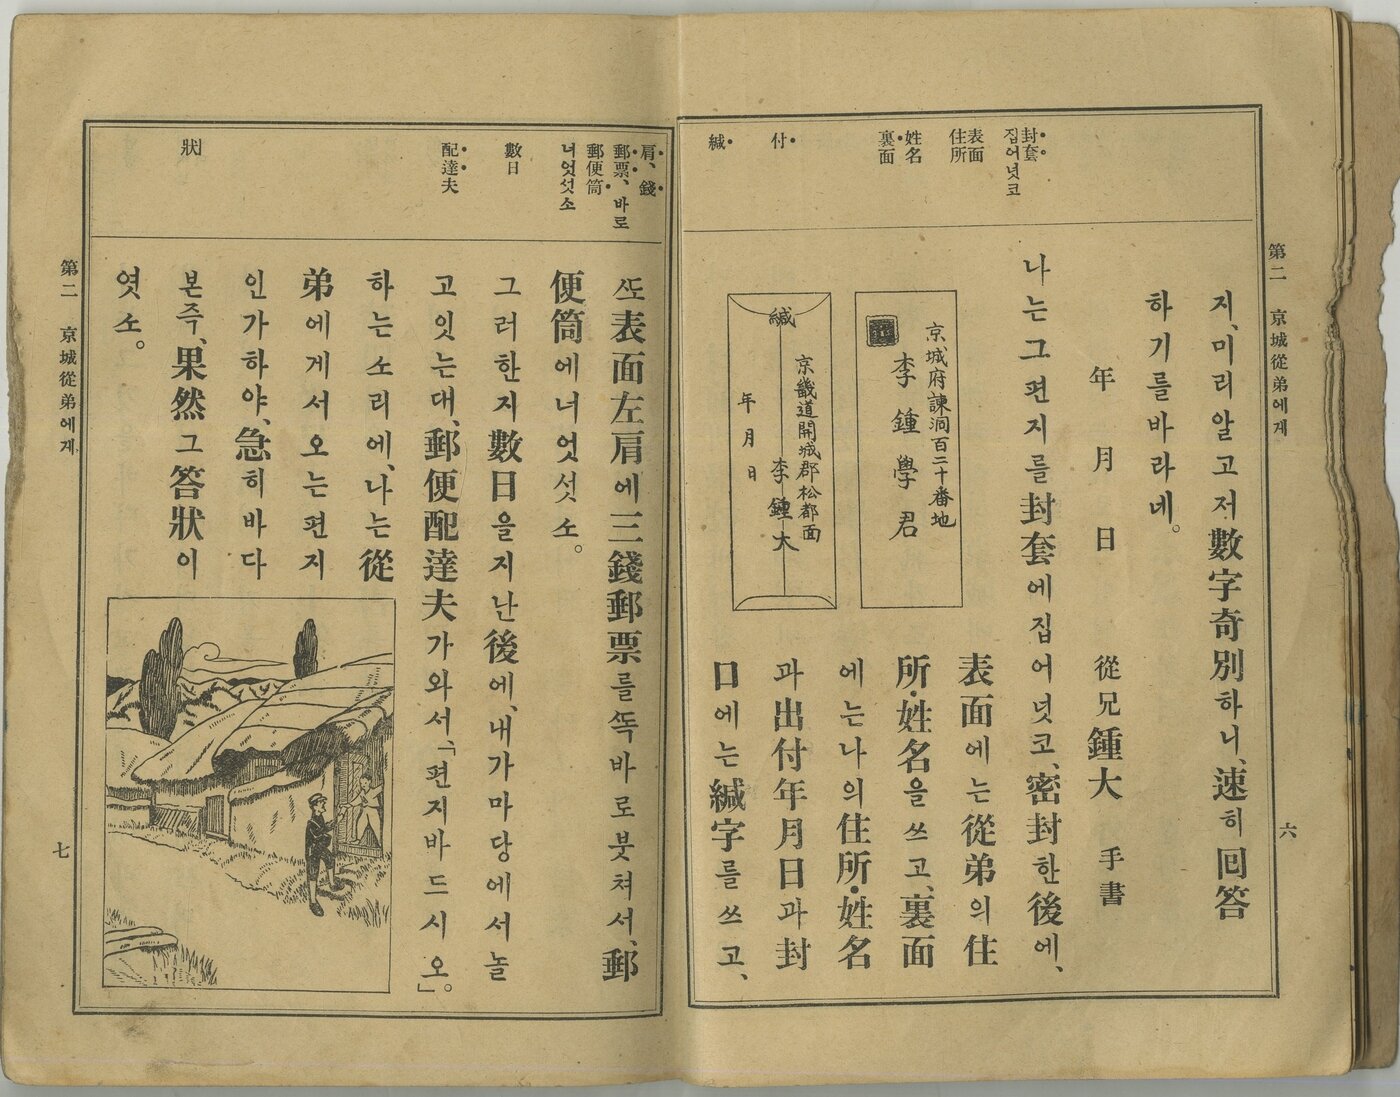 第二 京城從弟에게 六
封套
집어넛코
表面
住所
姓名
裏面
付
緘
지、미리알고저數字奇別하니、速히回答
하기를바라네。
年 月 日 從兄鍾大 手書
나는그편지를封套에집어넛코、密封한後에、
京城府諫洞百二十番地
李鍾學君
京畿道開城郡松都面
李鍾大
緘
年月日
表面에는從弟의住
所·姓名을쓰고、裏面
에는나의住所·姓名
과出付年月日과封
口에는緘字를쓰고、
肩、錢
郵票、바로
郵便筒
너엇섯소
數日
配達夫
狀
ᄯᅩ表面左肩에三錢郵票를ᄯᅩᆨ바로붓쳐서、郵
便筒에너엇섯소。
그러한지數日을지난後에、내가마당에서놀
고잇는대、郵便配達夫가와서、「편지바드시오」。
하는소리에、나는從
弟에게서오는편지
인가하야、急히바다
본즉、果然그答狀이
엿소。
第二 京城從弟에게 七